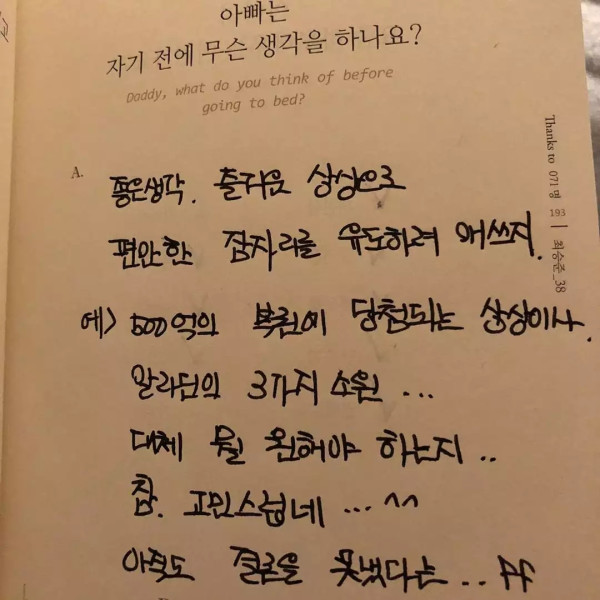 아빠는
자기 전에 무슨 생각을 하나요?
Daddy, what do you think of before
going to bed?
A.
좋은생각. 즐거운 상상으로
편안한 잠자리를 유도하려 애쓰지.
예> 500억의 복권에 당첨되는 상상이나.
알라딘의 3가지 소원 ...
대체 뭘 원해야 하는지 ..
참. 고민스럽네 ... ^^
아직도 결론을 못냈다는 ..
Thanks to 071명 193 | 최승준_38